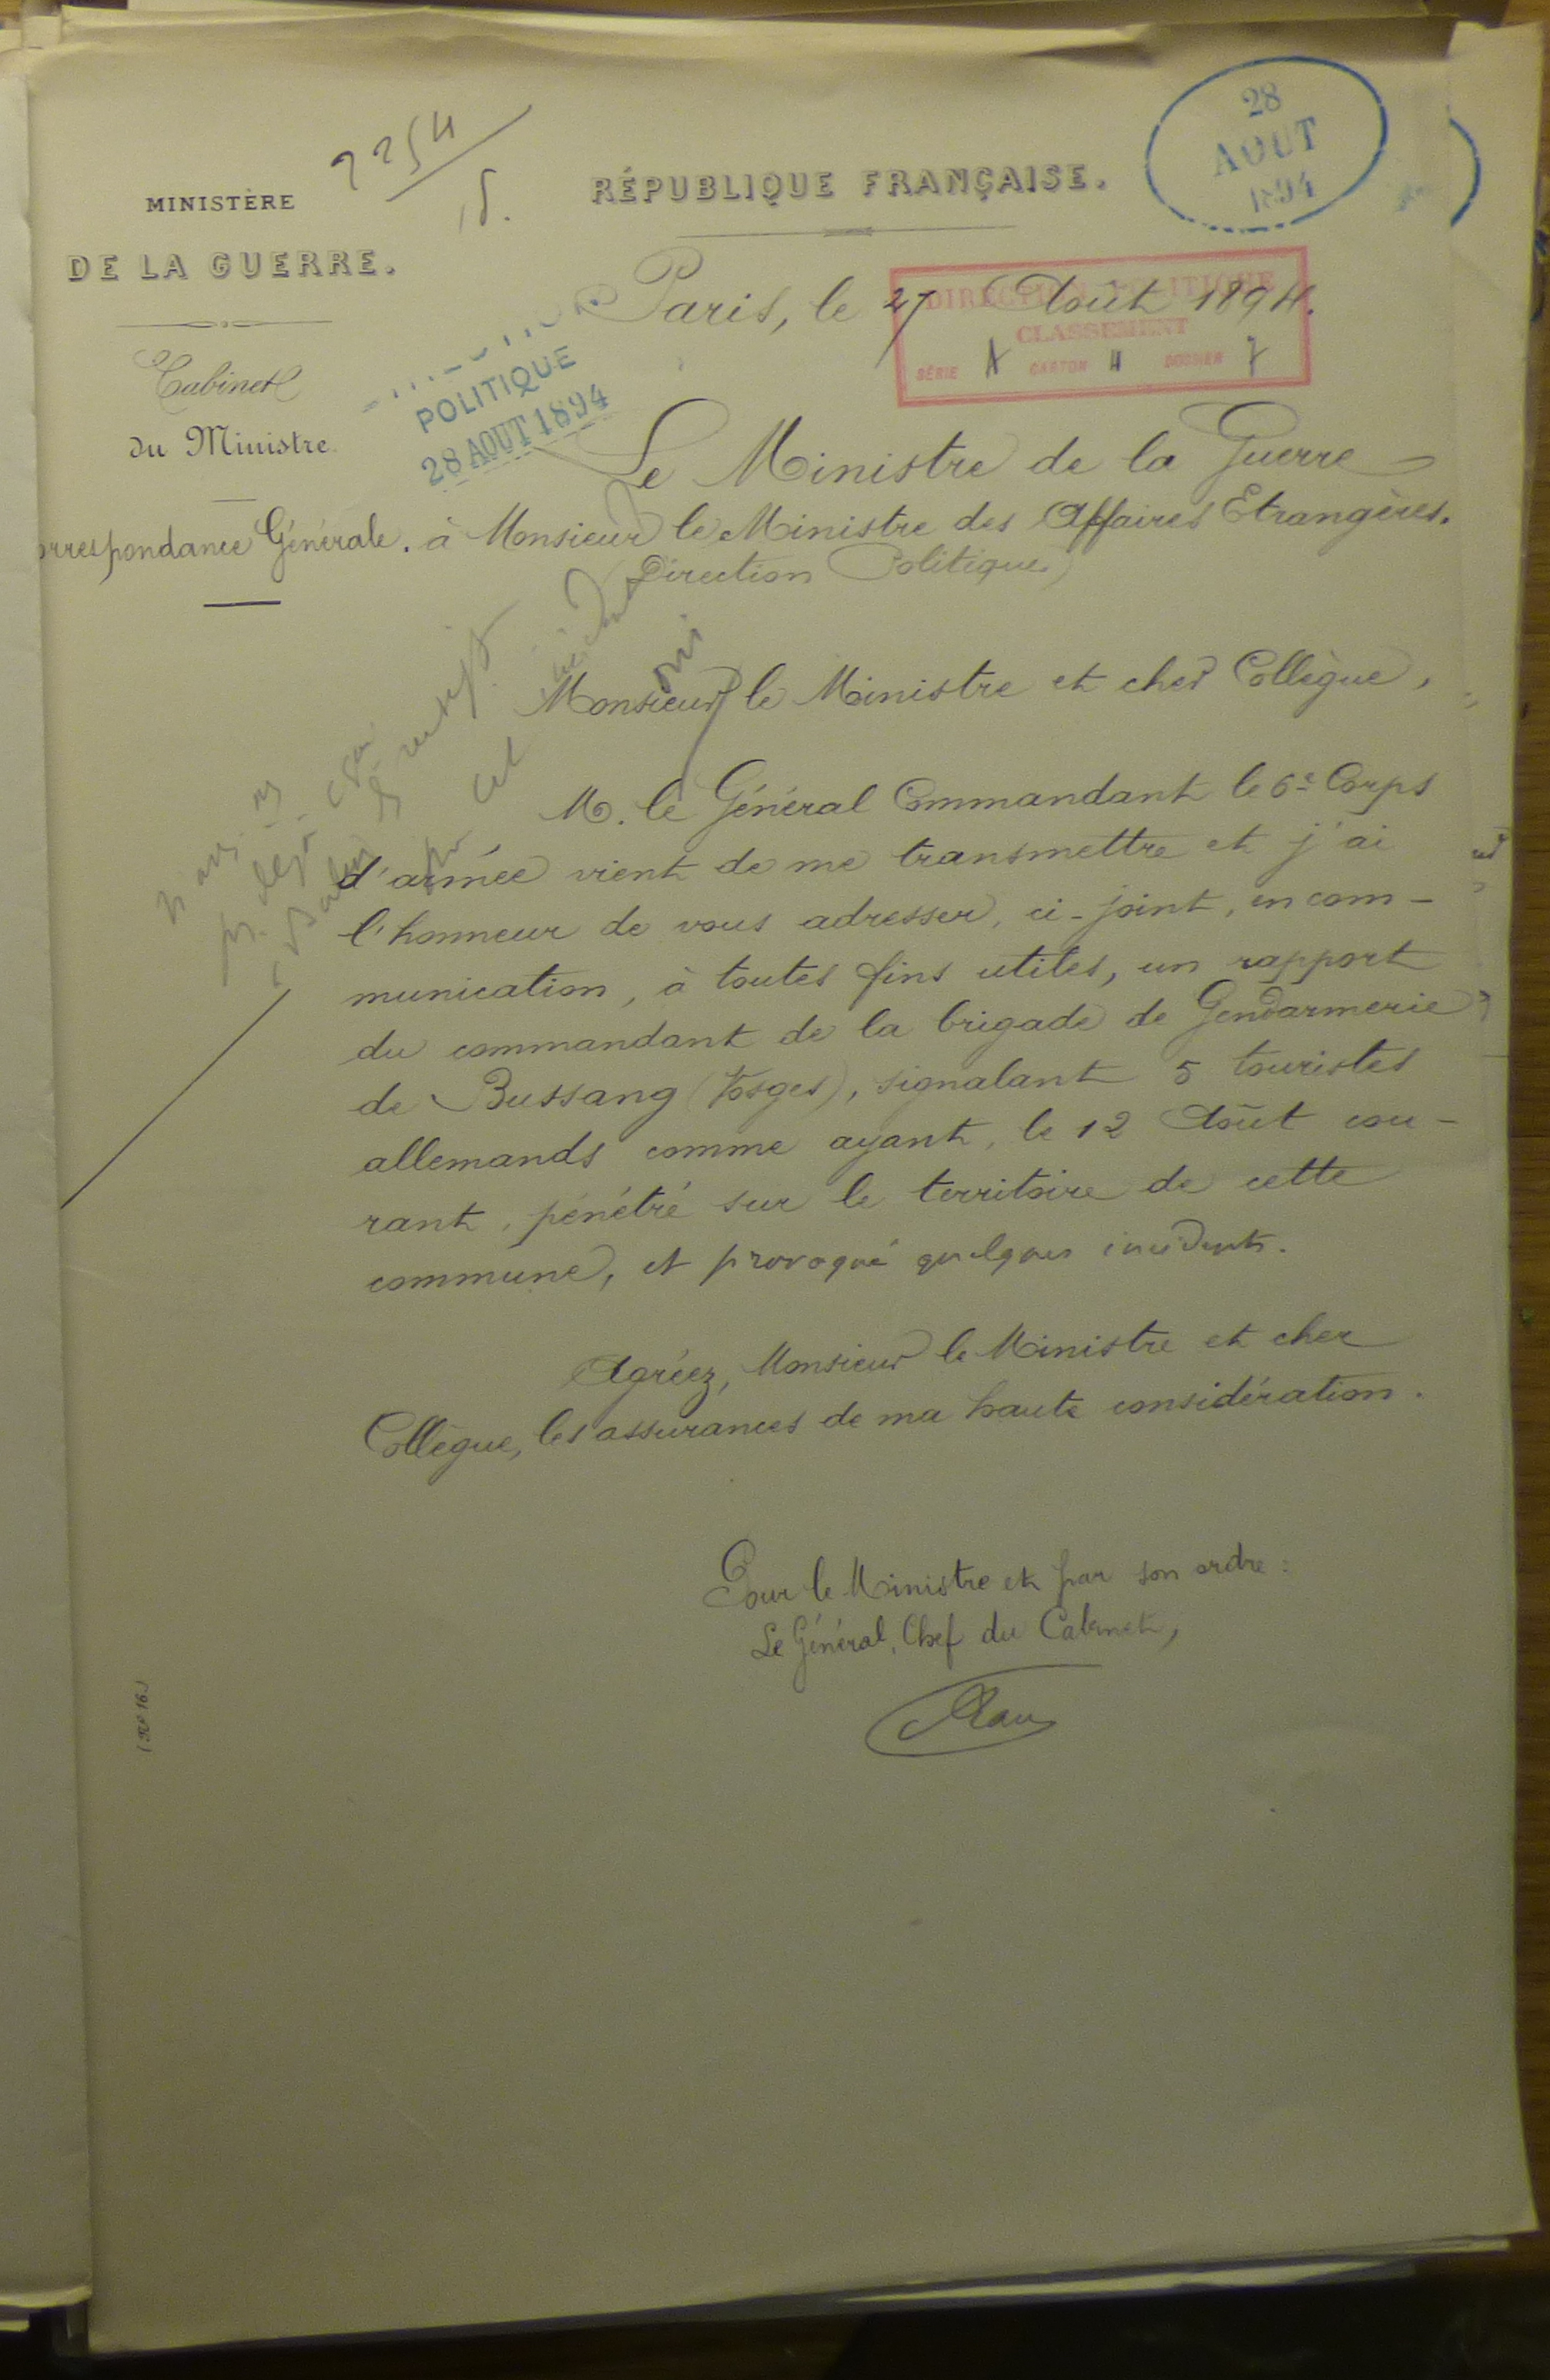 2254
15.
28
AOUT
1894
MINISTÈRE
DE LA GUERRE.
Cabinet
du Ministre
orrespondance Générale.
RÉPUBLIQUE FRANÇAISE.
Paris, le 27 Août 1894.
DIRECTION POLITIQUE
CLASSEMENT
SÉRIE A CARTON 4 DOSSIER 7
POLITIQUE
28 AOUT 1894
Le Ministre de la Guerre
à Monsieur le Ministre des Affaires Etrangères.
(Direction Politique)
oui
Monsieur le Ministre et cher Collègue,
M. le Général Commandant le 6e Corps
d'armée vient de me transmettre et j'ai
l'honneur de vous adresser, ci-joint, en com-
munication, à toutes fins utiles, un rapport
du commandant de la brigade de Gendarmerie
de Bussang (Vosges), signalant 5 touristes
allemands comme ayant, le 12 Août cou-
rant, pénétré sur le territoire de cette
commune, et provoqué quelques incidents.
Agréez, Monsieur le Ministre et cher
Collègue, les assurances de ma haute considération.
Pour le Ministre et par son ordre:
Le Général, Chef du Cabinet,
(No 16.)